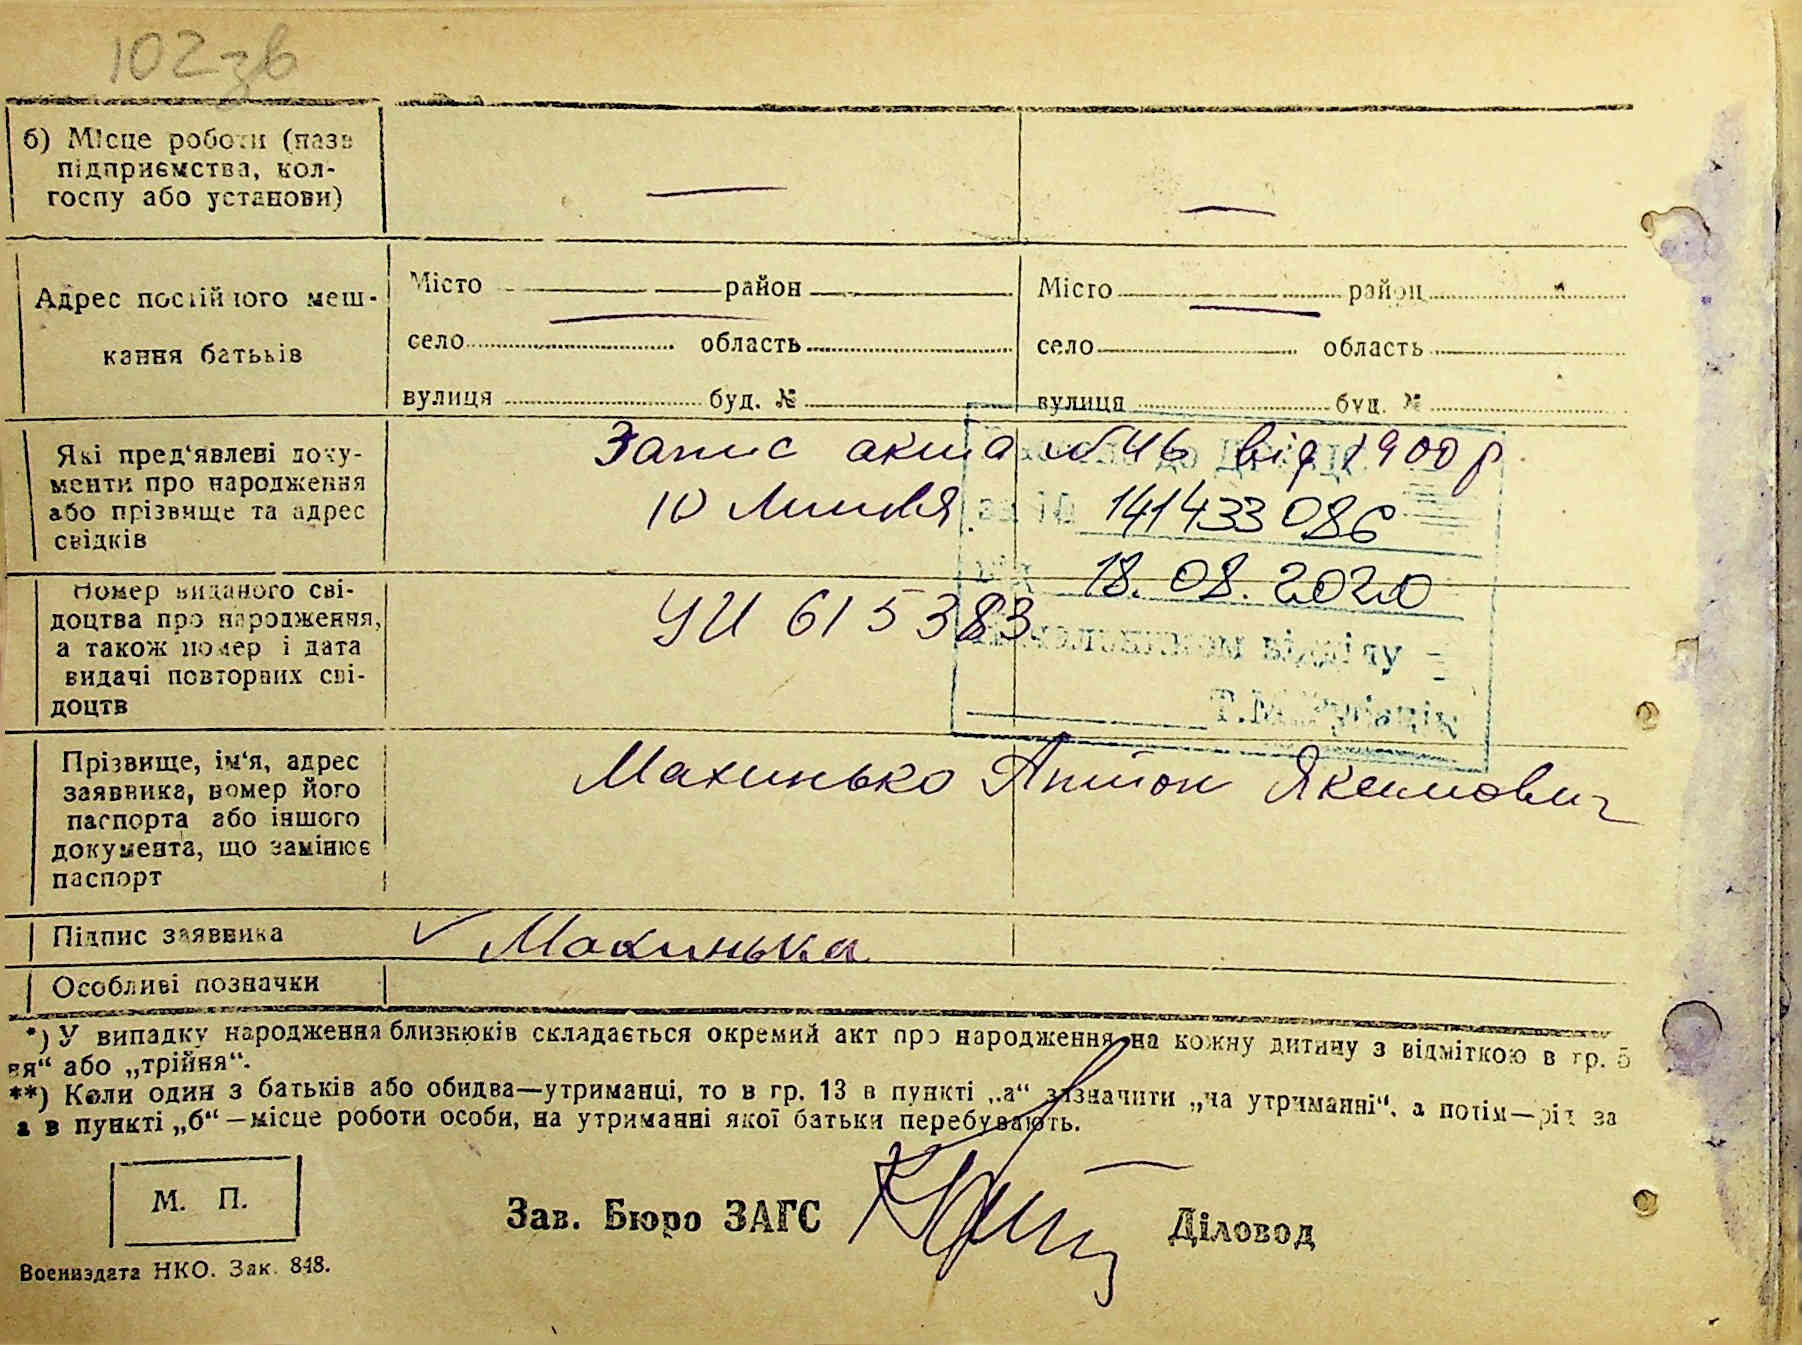 102зв
б) Місце роботи (назв
підприємства, кол-
госпу або установи)
—
—
Адрес постійного меш-
кання батьків
Місто район
село область
вулиця буд. №
Місто район
село область
вулиця буд. №
Які пред'явлені доку-
менти про народження
або прізвище та адрес
свідків
Запис акта №46 від 1900 р.
10 липня
до
за №
141433086
від 18.08.2020
відділу
Т.М.
Номер виданого сві-
доцтва про народження,
а також номер і дата
видачі повторних сві-
доцтв
УИ 615383
Прізвище, ім'я, адрес
заявника, номер його
паспорта або іншого
документа, що замінює
паспорт
Махинько Антон Якимович
Підпис заявника
✓ Махинька
Особливі позначки
*) У випадку народження близнюків складається окремий акт про народження на кожну дитину з відміткою в гр. 5
ня“ або „трійня“.
**) Коли один з батьків або обидва—утриманці, то в гр. 13 в пункті „а“ зазначити „на утриманні“, а потім—рід за
а в пункті „б“—місце роботи особи, на утриманні якої батьки перебувають.
М. П.
Зав. Бюро ЗАГС
Діловод
Воениздата НКО. Зак. 848.